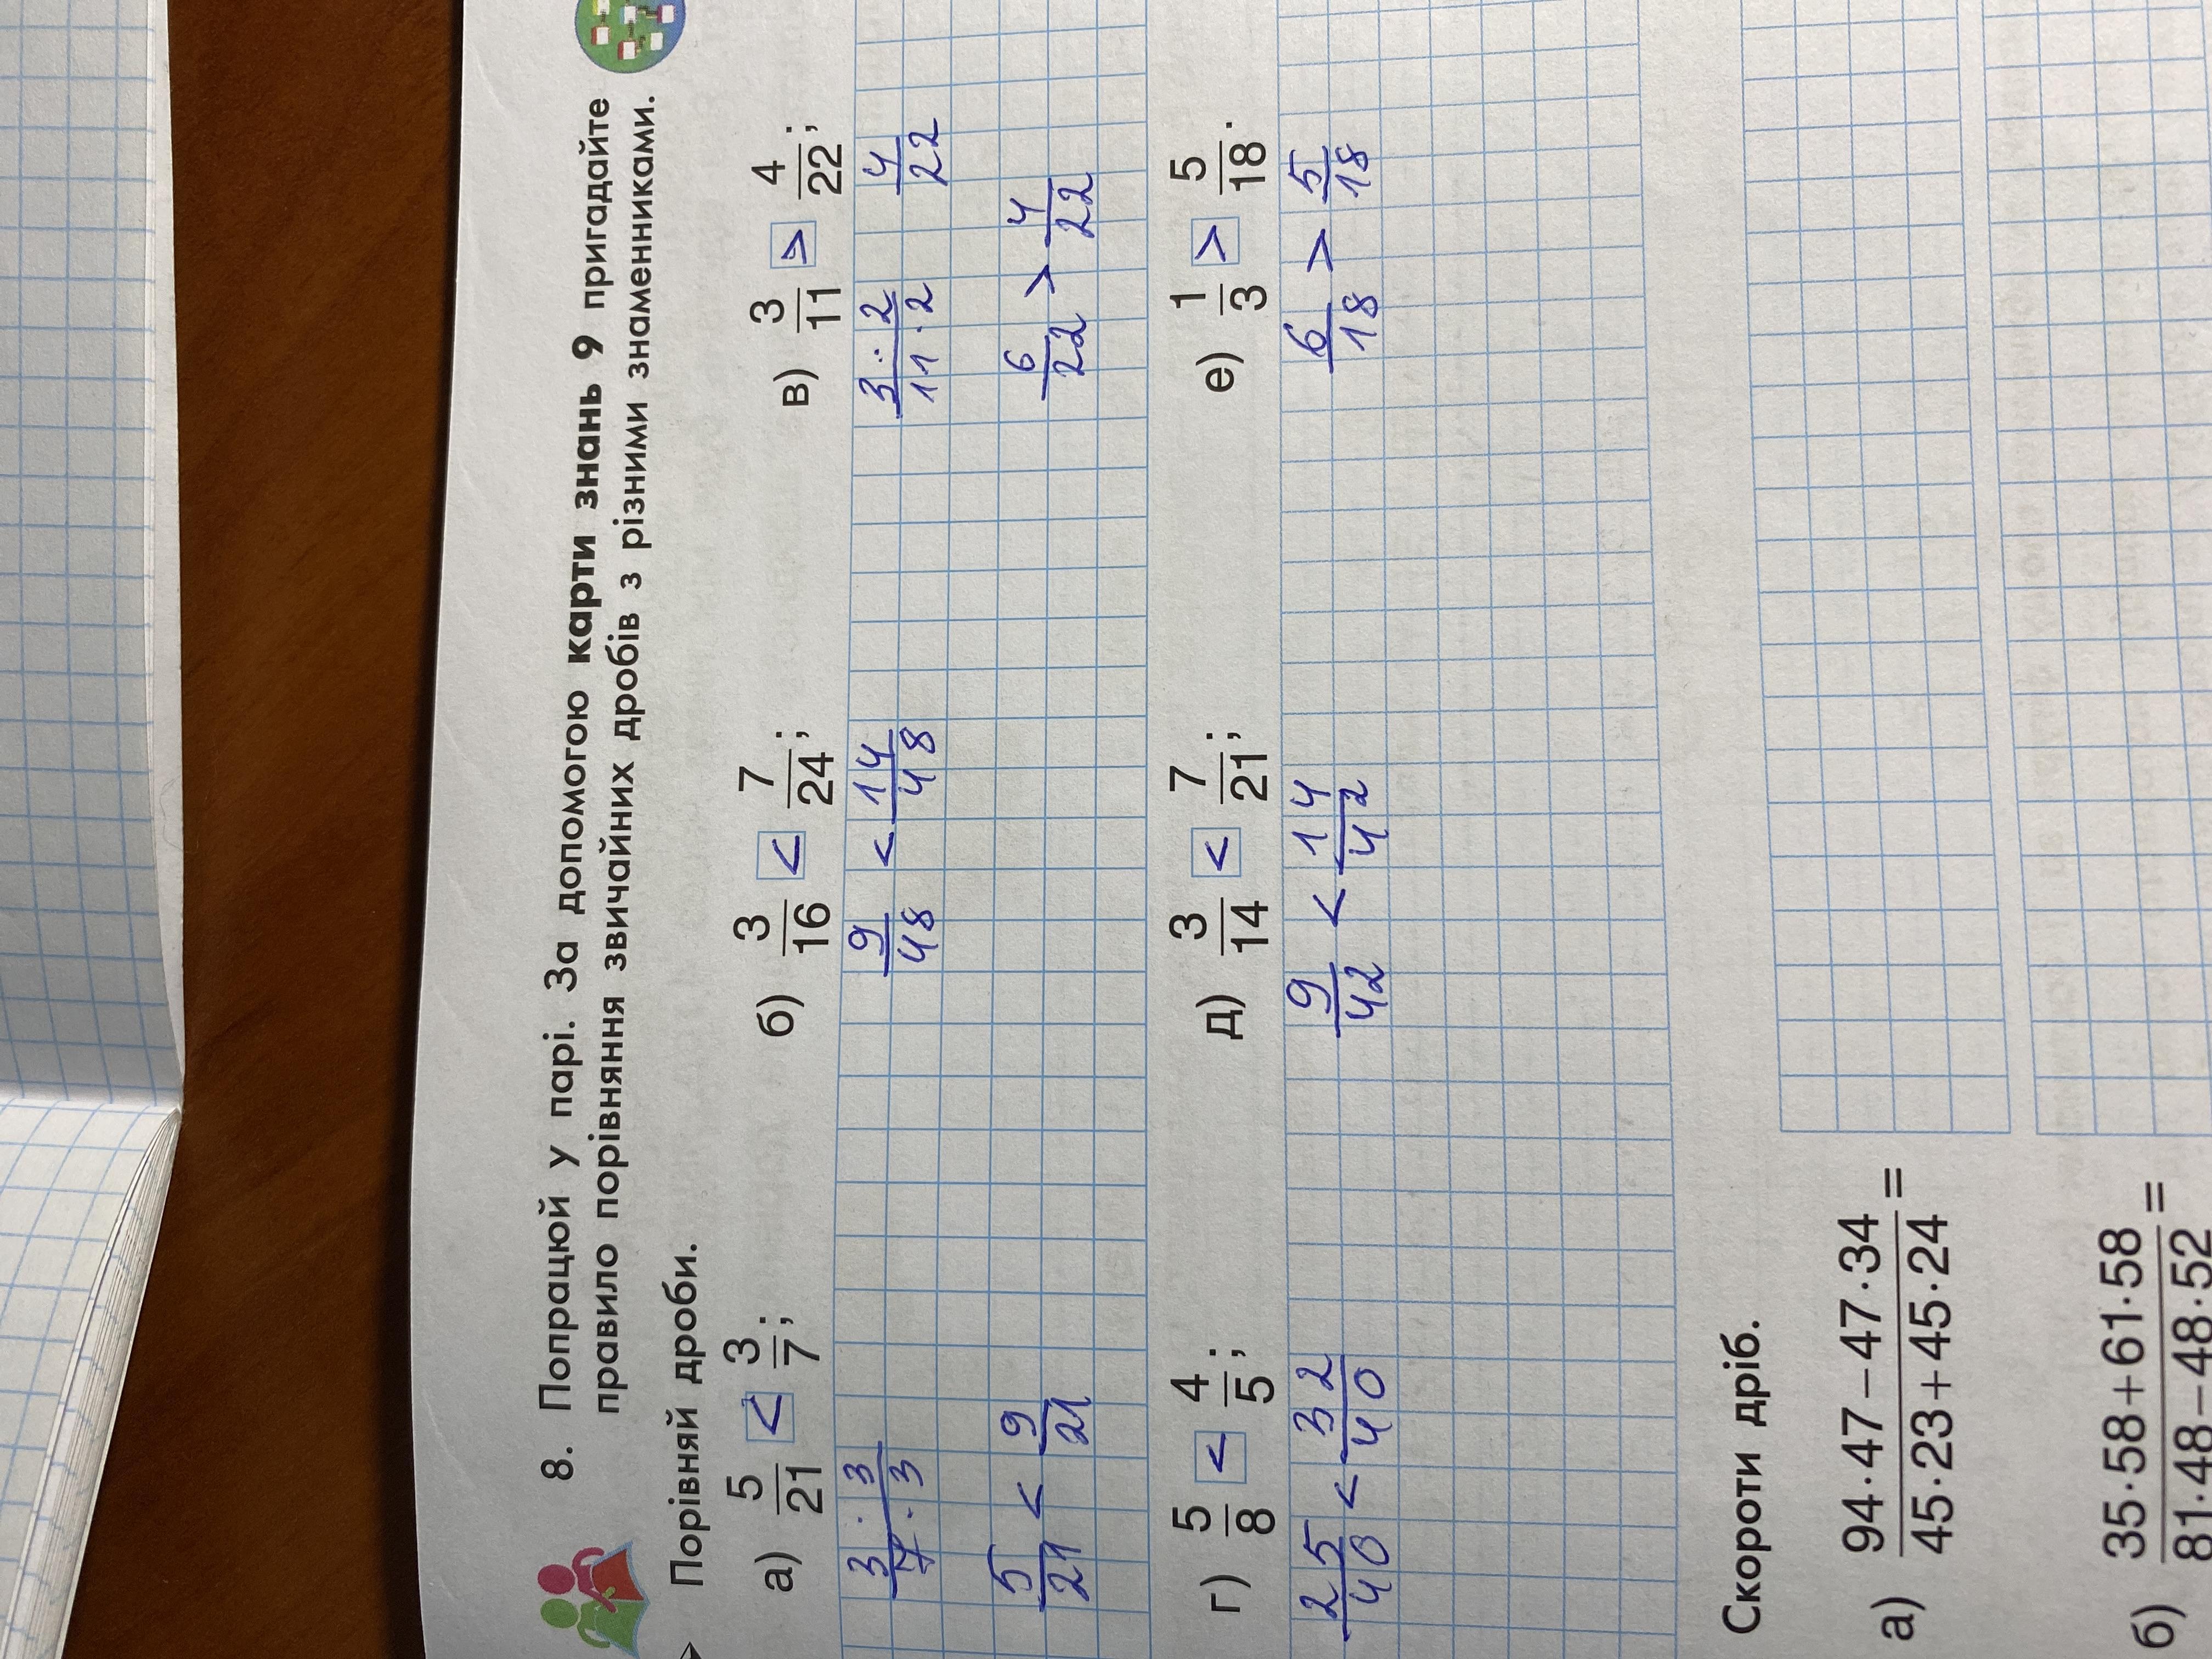 8. Попрацюй у парі. За допомогою карти знань 9 пригадайте
правило порівняння звичайних дробів з різними знаменниками.
Порівняй дроби.
а) 5/21 < 3/7; б) 3/16 < 7/24; в) 3/11 > 4/22;
3·3/7·3 9/48 < 14/48 3·2/11·2 4/22
5/21 < 9/21 6/22 > 4/22
г) 5/8 < 4/5; д) 3/14 < 7/21; е) 1/3 > 5/18.
25/40 < 32/40 9/42 < 14/42 6/18 > 5/18
Скороти дріб.
а) 94·47−47·34/45·23+45·24 =
б) 35·58+61·58/81·48−48·52 =